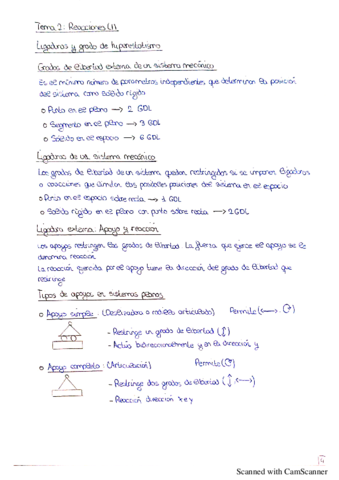 Tema 2: Reacciones LII
Ligaduras y grado de hiperestatismo
Grados de libertad externa de un sistema mecánico
Es el mínimo número de parámetros independientes que determinan la posición
del sistema como sólido rígido
o Punto en el plano → 2 GDL
o Segmento en el plano → 3 GDL
o Sólido en el espacio → 6 GDL
Ligaduras de un sistema mecánico
Los grados de libertad de un sistema quedan restringidos si se imponen ligaduras
o coacciones que limitan las posibles posiciones del sistema en el espacio
o Punto en el espacio sobre recta → 1 GDL
o Sólido rígido en el plano con punto sobre recta → 2 GDL
Ligadura externa: Apoyo y reacción
Los apoyos restringen los grados de libertad. La fuerza que ejerce el apoyo se le
denomina reacción
La reacción ejercida por el apoyo tiene la dirección del grado de libertad que
restringe
Tipos de apoyos en sistemas planos
o Apoyo simple: (Deslizadera o rodillo articulado) Permite (↔, ↻)
- Restringe un grado de libertad (↕)
- Actúa bidireccionalmente y en la dirección y
o Apoyo completo: (Articulación) Permite (↻)
- Restringe dos grados de libertad (↕, ↔)
- Reacción dirección x e y
Scanned with CamScanner